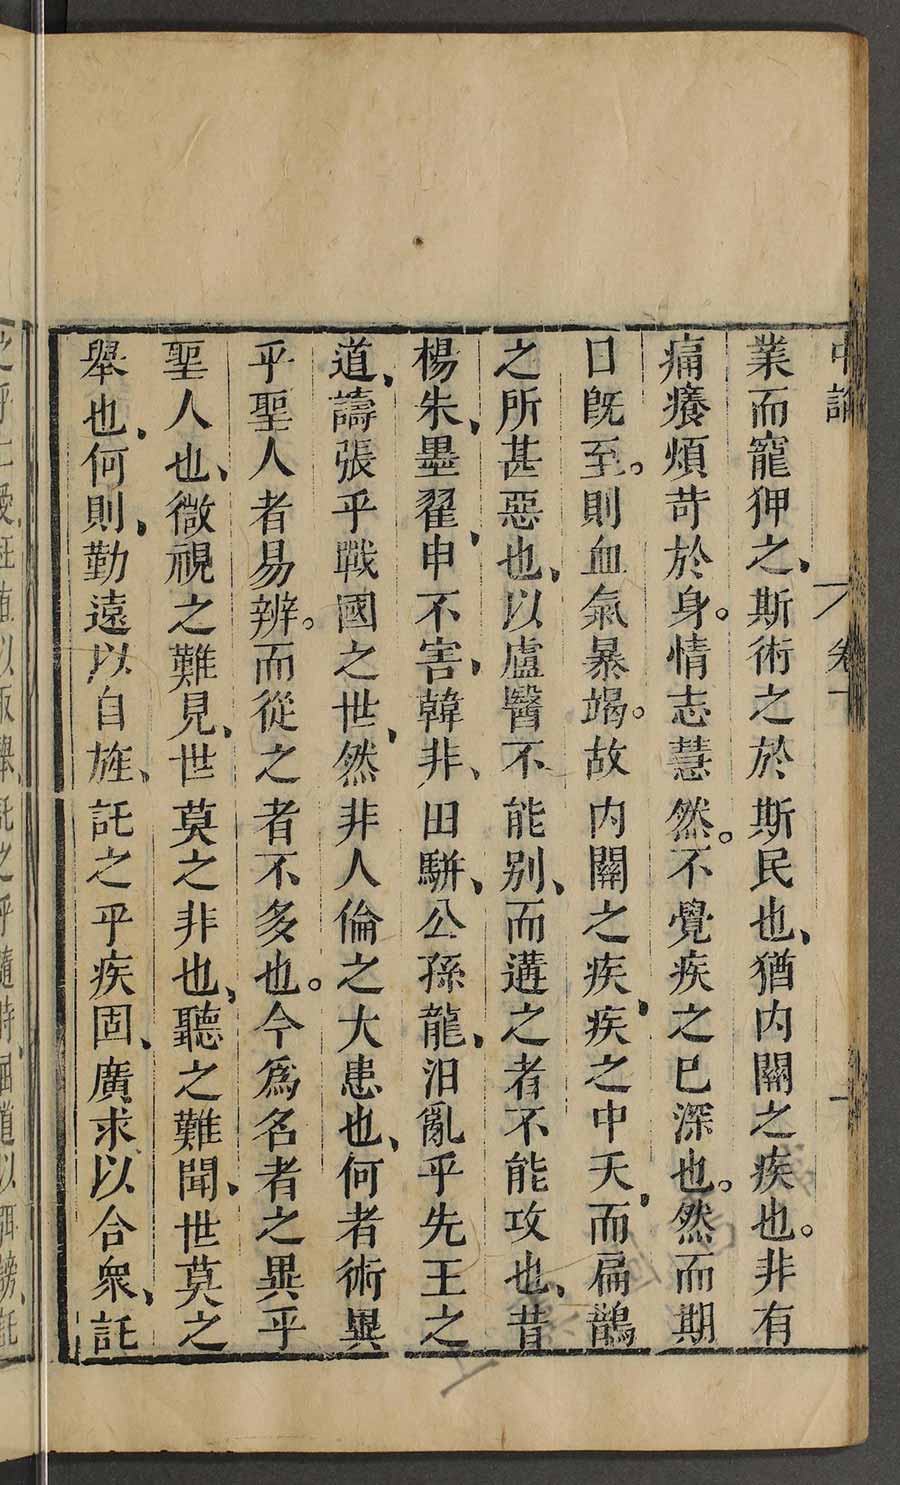 中論
卷下
業而寵狎之、斯術之於斯民也、猶内關之疾也。非有
痛癢煩苛於身。情志慧然。不覺疾之已深也。然而期
日旣至。則血氣暴竭。故内關之疾、疾之中夭、而扁鵲
之所甚惡也、以盧醫不能别、而遘之者不能攻也、昔
楊朱、墨翟、申不害、韓非、田駢、公孫龍、汨亂乎先王之
道、譸張乎戰國之世、然非人倫之大患也、何者術異
乎聖人者易辨。而從之者不多也。今爲名者之異乎
聖人也、微視之難見、世莫之非也、聽之難聞、世莫之
舉也、何則、勤遠以自旌、託之乎疾固、廣求以合衆、託